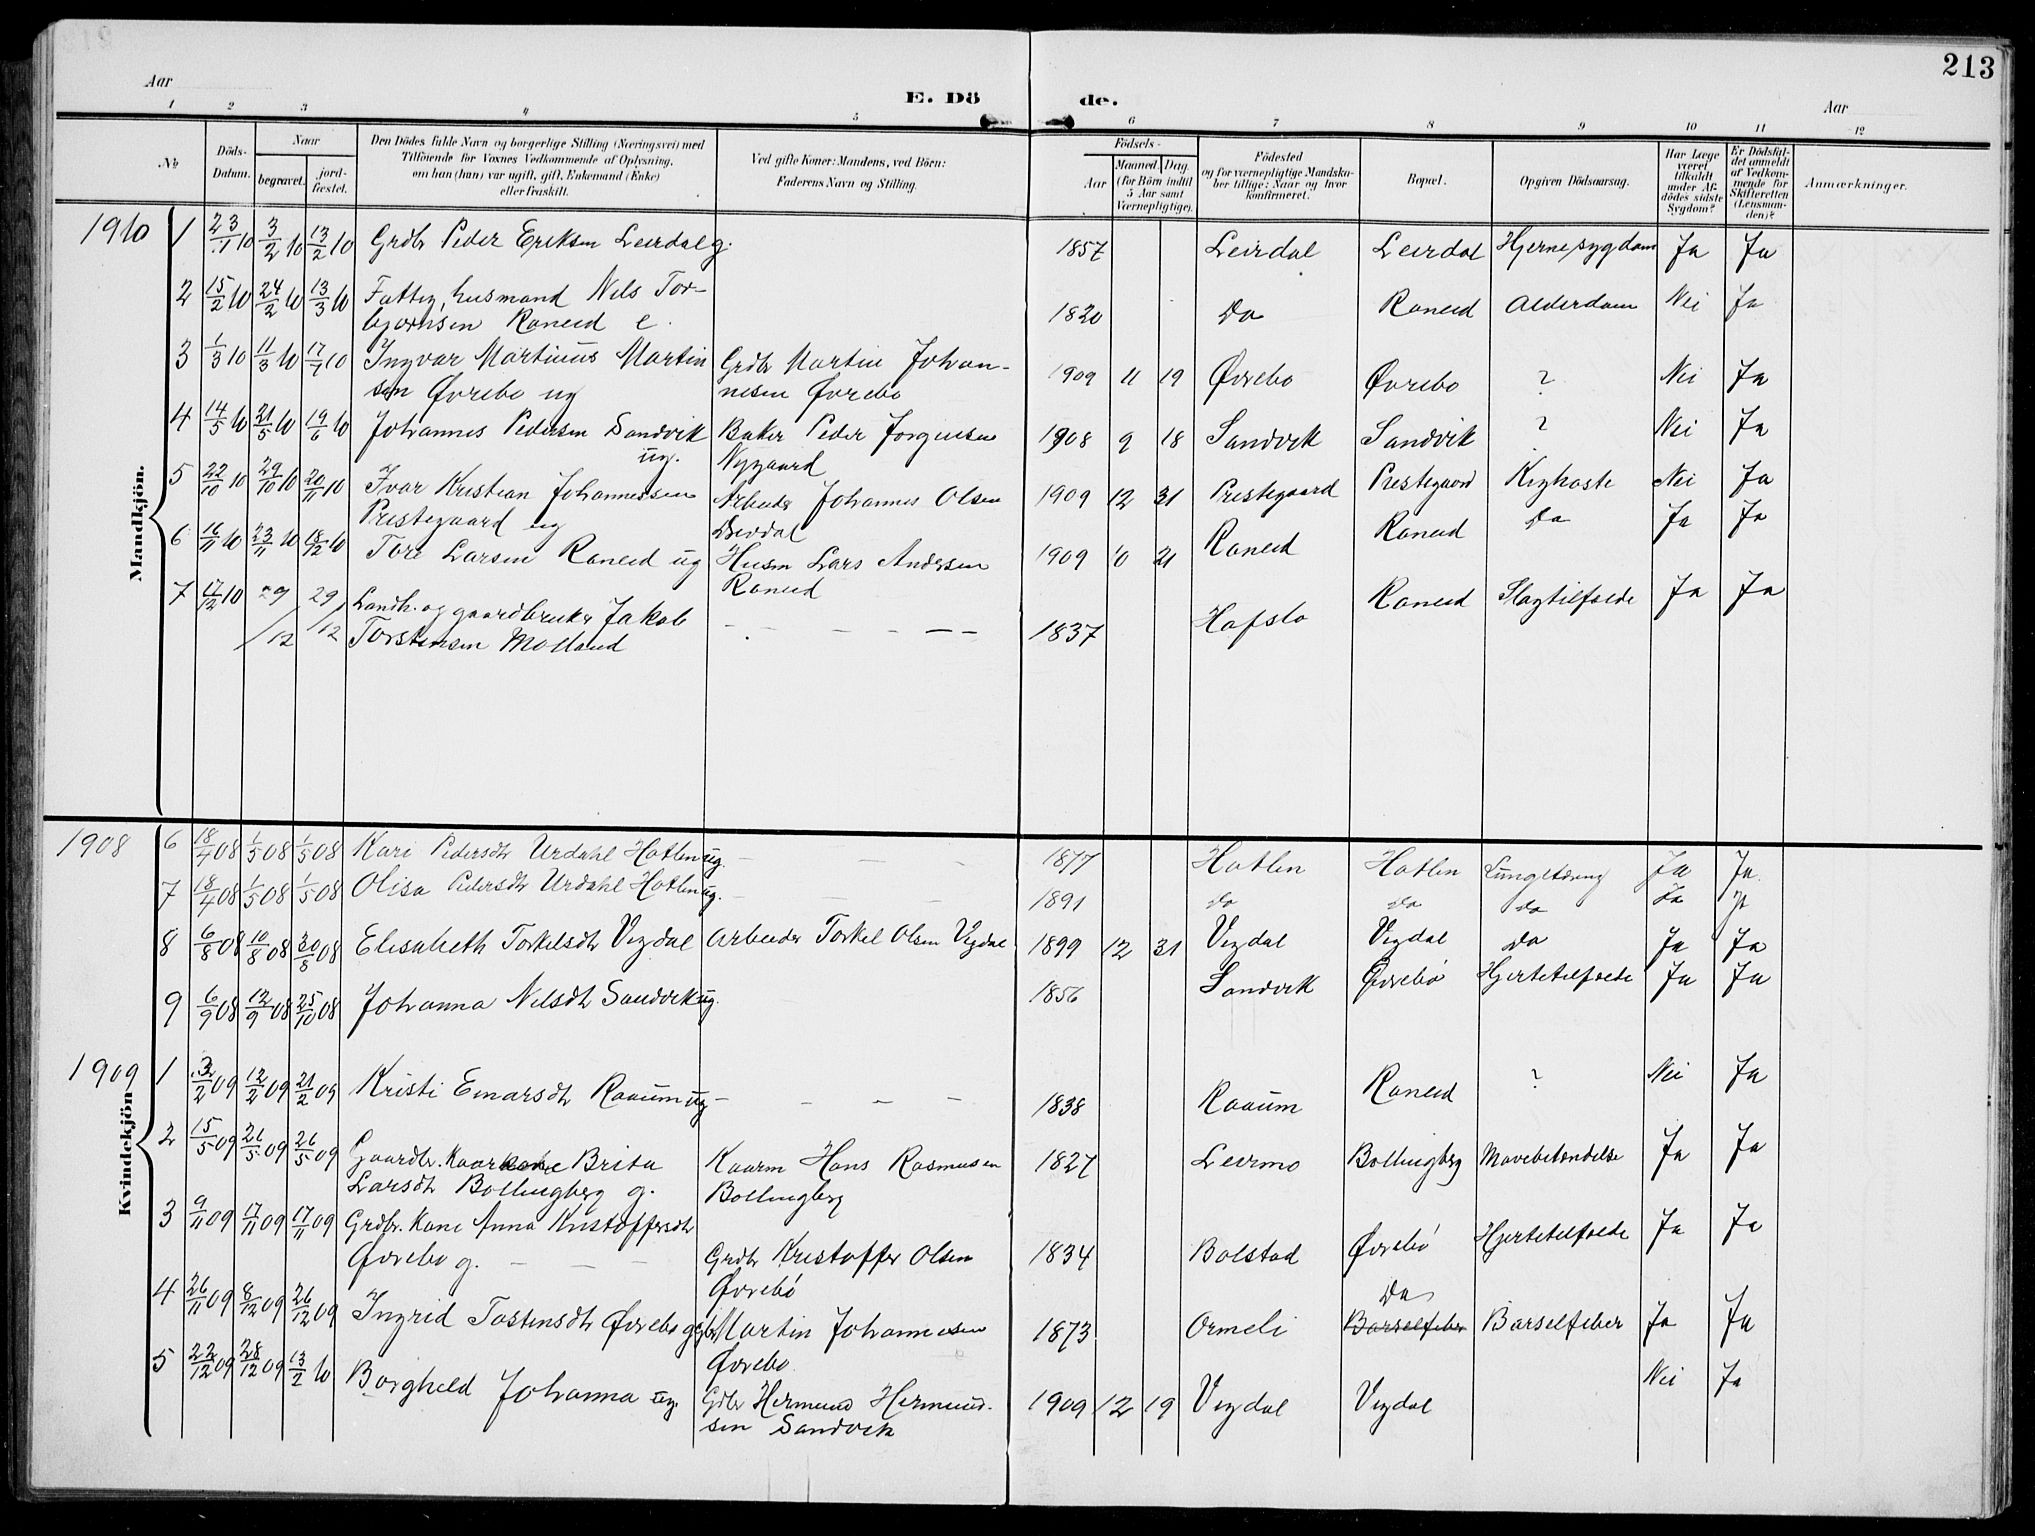 213
Aar
E. Dö de.
Aar
1 2 3 4 5 6 7 8 9 10 11 12
No
Döds-
Datum.
Naar
begravet.
jord-
fæstet.
Den Dödes fulde Navn og borgerlige Stilling (Næringsvei) med
Tilföiende for Voxnes Vedkommende af Oplysning,
om han (hun) var ugift, gift, Enkemand (Enke)
eller fraskilt.
Ved gifte Koner: Mandens, ved Börn:
Faderens Navn og Stilling.
Födsels-
Aar
Maaned. Dag.
(for Börn indtil
5 Aar samt
Værnepligtige).
Födested
og for værnepligtige Mandska-
ber tillige: Naar og hvor
konfirmeret.
Bopæl.
Opgiven Dödsaarsag.
Har Læge
været
tilkaldt
under Af-
dödes sidste
Sygdom?
Er Dödsfal-
det anmeldt
af Vedkom-
mende for
Skifteretten
(Lensman-
den)?
Anmærkninger.
Mandkjön.
1910 1 23/1 10 3/2 10 13/2 10 Grdbr Peder Eriksen Leirdal g. 1857 Leirdal Leirdal Hjernesygdom Ja Ja
2 15/2 10 24/2 10 13/3 10 Fattig, husmand Nels Tor-
bjørnsen Raneid e. 1820 Do Raneid Alderdom Nei Ja
3 1/3 10 11/3 10 17/4 10 Ingvar Martinus Martin Grdbr Martin Johan-
sen Øvrebo ug nesen Øvrebo 1909 11 19 Øvrebo Øvrebo ? Nei Ja
4 14/5 10 21/5 10 19/6 10 Johannes Pedersen Sandvik Baker Peder Jørgensen 1908 9 18 Sandvik Sandvik ? Nei Ja
ug. Nygaard
5 22/10 10 29/10 10 20/11 10 Ivar Kristian Johannessen Arbeider Johannes Olsen 1909 12 31 Prestegaard Prestegaard Kighoste Nei Ja
Prestegaard ug
6 16/11 10 23/11 10 18/12 10 Tore Larsen Raneid ug Husm Lars Andersen 1909 10 21 Raneid Raneid Do Ja Ja
Raneid
7 17/12 10 29/12 29/12 Landh. og gaardbruker Jakob – – – – – 1837 Hafslo Raneid Slagtilfælde Ja Ja
Torstensen Molland
Kvindekjön
1908 6 18/4 08 1/5 08 1/5 08 Kari Pedersdtr Urdahl Hatlen ug. – – – 1877 Hatlen Hatlen Lungetæring Ja Ja
7 18/4 08 1/5 08 1/5 08 Olisa Pedersdtr Urdahl Hatlen ug. – – – 1891 do do do Ja Ja
8 6/8 08 10/8 08 30/8 08 Elisabeth Torkelsdtr Vigdal Arbeider Torkel Olsen Vigdal 1899 12 31 Vigdal Vigdal Do Ja Ja
9 6/9 08 12/9 08 25/10 08 Johanna Nelsdtr Sandvik ug. 1856 Sandvik Øvrebø Hjertetilfælde Ja Ja
1909 1 3/2 09 12/2 09 21/2 09 Kristi Einarsdtr Raaum ug – – – – 1838 Raaum Raneid ? Nei Ja
2 15/5 09 21/5 09 26/5 09 Gaardbr. Kaarkone Brita Kaarm Hans Rasmusen 1827 Leirmo Bollingberg Mavebetændelse Ja Ja
Larsdtr Bollingberg g. Bollingberg
3 9/11 09 17/11 09 17/11 09 Grdbr. Kone Anna Kristoffersdtr
Øvrebo g. – – – Grdbr Kristoffer Olsen 1834 Bolstad Øvrebø Hjertetilfælde Ja Ja
Øvrebø
4 26/11 09 8/12 09 26/12 09 Ingrid Tostensdtr Øvrebo g Martin Johannesen 1873 Ormeli Do Barselfeber Barselfeber Ja Ja
Øvrebo
5 22/12 09 28/12 09 13/2 10 Borghild Johanna ug. Gdbr Hermund Hermund- 1909 12 19 Vigdal Vigdal Nei Ja
sen Sandvik